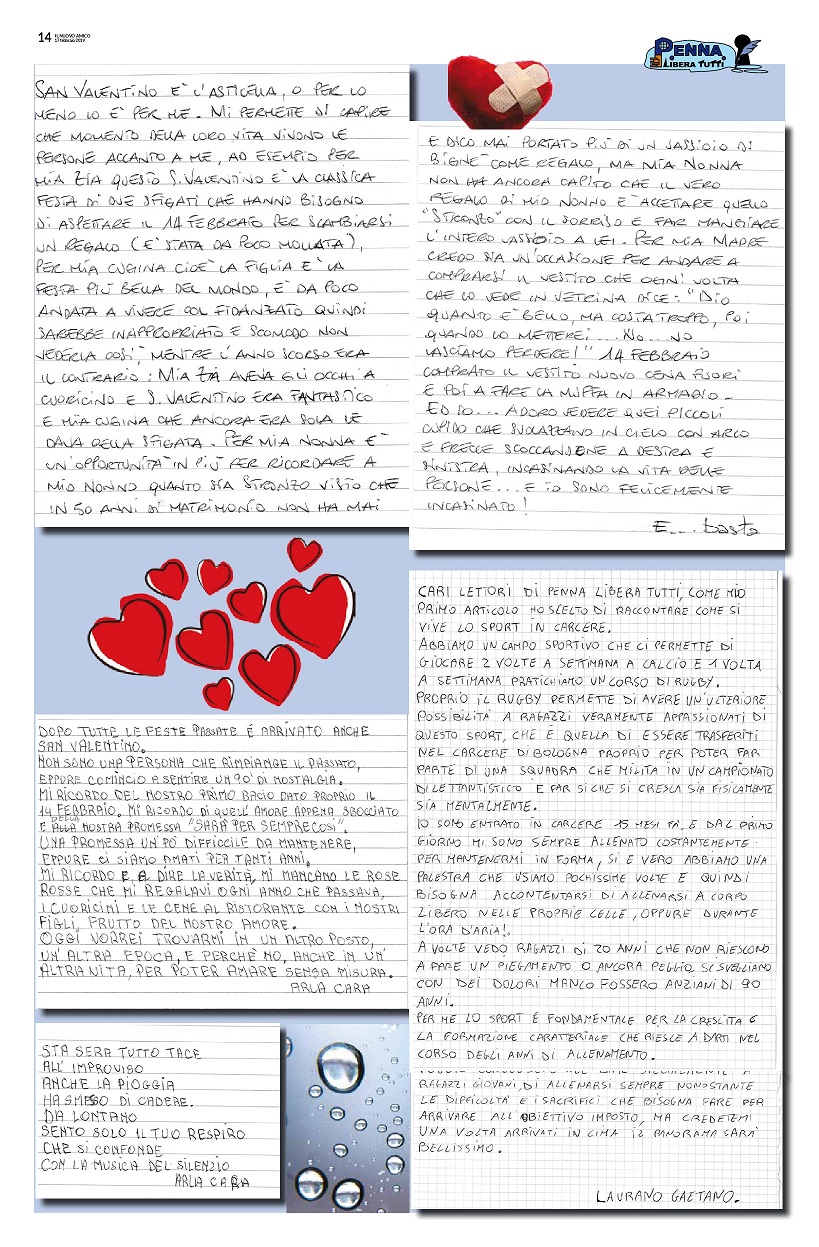 14 IL NUOVO AMICO
17 febbraio 2019
PENNA
LIBERA TUTTI
SAN VALENTINO E' L'ASTICELLA, O PER LO
MENO LO E' PER ME. MI PERMETTE DI CAPIRE
CHE MOMENTO DELLA LORO VITA VIVONO LE
PERSONE ACCANTO A ME, AD ESEMPIO PER
MIA ZIA QUESTO S. VALENTINO E' LA CLASSICA
FESTA DI DUE SFIGATI CHE HANNO BISOGNO
DI ASPETTARE IL 14 FEBBRAIO PER SCAMBIARSI
UN REGALO (E' STATA DA POCO MOLLATA),
PER MIA CUGINA CIOE' LA FIGLIA E' LA
FESTA PIU' BELLA DEL MONDO, E' DA POCO
ANDATA A VIVERE COL FIDANZATO QUINDI
SAREBBE INAPPROPRIATO E SCOMODO NON
VEDERLA COSI', MENTRE L'ANNO SCORSO ERA
IL CONTRARIO: MIA ZIA AVEVA GLI OCCHI A
CUORICINO E S. VALENTINO ERA FANTASTICO
E MIA CUGINA CHE ANCORA ERA SOLA LE
DAVA DELLA SFIGATA. PER MIA NONNA E'
UN'OPPORTUNITA' IN PIU' PER RICORDARE A
MIO NONNO QUANTO SIA STRONZO VISTO CHE
IN 50 ANNI DI MATRIMONIO NON HA MAI
E DICO MAI PORTATO PIU' DI UN VASSOIO DI
BIGNE' COME REGALO, MA MIA NONNA
NON HA ANCORA CAPITO CHE IL VERO
REGALO DI MIO NONNO E' ACCETTARE QUELLO
"STRONZO" CON IL SORRISO E FAR MANGIARE
L'INTERO VASSOIO A LEI. PER MIA MADRE
CREDO SIA UN'OCCASIONE PER ANDARE A
COMPRARSI IL VESTITO CHE OGNI VOLTA
CHE LO VEDE IN VETRINA DICE: "DIO
QUANTO E' BELLO, MA COSTA TROPPO, POI
QUANDO LO METTEREI... NO... NO
LASCIAMO PERDERE!" 14 FEBBRAIO
COMPRATO IL VESTITO NUOVO CENA FUORI
E POI A FARE LA MUFFA IN ARMADIO.
ED IO... ADORO VEDERE QUEI PICCOLI
CUPIDO CHE SVOLAZZANO IN CIELO CON ARCO
E FRECCE SCOCCANDONE A DESTRA E
SINISTRA, INCASINANDO LA VITA DELLE
PERSONE... E IO SONO FELICEMENTE
INCASINATO!
E...basta
DOPO TUTTE LE FESTE PASSATE É ARRIVATO ANCHE
SAN VALENTINO.
NON SONO UNA PERSONA CHE RIMPIANGE IL PASSATO,
EPPURE COMINCIO A SENTIRE UN PO' DI NOSTALGIA.
MI RICORDO DEL NOSTRO PRIMO BACIO DATO PROPRIO IL
14 FEBBRAIO. MI RICORDO DI QUELL' AMORE APPENA SBOCCIATO
E DELLA NOSTRA PROMESSA "SARÀ PER SEMPRE COSÌ".
UNA PROMESSA UN PO' DIFFICILE DA MANTENERE,
EPPURE CI SIAMO AMATI PER TANTI ANNI.
MI RICORDO E A DIRE LA VERITÀ, MI MANCANO LE ROSE
ROSSE CHE MI REGALAVI OGNI ANNO CHE PASSAVA,
I CUORICINI E LE CENE AL RISTORANTE CON I NOSTRI
FIGLI, FRUTTO DEL NOSTRO AMORE.
OGGI VORREI TROVARMI IN UN ALTRO POSTO,
UN' ALTRA EPOCA, E PERCHÈ NO, ANCHE IN UN'
ALTRA VITA, PER POTER AMARE SENSA MISURA.
ARUA CARA
STA SERA TUTTO TACE
ALL' IMPROVISO
ANCHE LA PIOGGIA
HA SMESSO DI CADERE.
DA LONTANO
SENTO SOLO IL TUO RESPIRO
CHE SI CONFONDE
CON LA MUSICA DEL SILENZIO
ARUA CARA
CARI LETTORI DI PENNA LIBERA TUTTI, COME MIO
PRIMO ARTICOLO HO SCELTO DI RACCONTARE COME SI
VIVE LO SPORT IN CARCERE.
ABBIAMO UN CAMPO SPORTIVO CHE CI PERMETTE DI
GIOCARE 2 VOLTE A SETTIMANA A CALCIO E 1 VOLTA
A SETTIMANA PRATICHIAMO UN CORSO DI RUGBY.
PROPRIO IL RUGBY PERMETTE DI AVERE UN'ULTERIORE
POSSIBILITÀ A RAGAZZI VERAMENTE APPASSIONATI DI
QUESTO SPORT, CHE È QUELLA DI ESSERE TRASFERITI
NEL CARCERE DI BOLOGNA PROPRIO PER POTER FAR
PARTE DI UNA SQUADRA CHE MILITA IN UN CAMPIONATO
DILETTANTISTICO E FAR SI CHE SI CRESCA SIA FISICAMENTE
SIA MENTALMENTE.
IO SONO ENTRATO IN CARCERE 15 MESI FÀ, E DAL PRIMO
GIORNO MI SONO SEMPRE ALLENATO COSTANTEMENTE
PER MANTENERMI IN FORMA, SI È VERO ABBIAMO UNA
PALESTRA CHE USIAMO POCHISSIME VOLTE E QUINDI
BISOGNA ACCONTENTARSI DI ALLENARSI A CORPO
LIBERO NELLE PROPRIE CELLE, OPPURE DURANTE
L'ORA D'ARIA!.
A VOLTE VEDO RAGAZZI DI 20 ANNI CHE NON RIESCONO
A FARE UN PIEGAMENTO O ANCORA PEGGIO, SI SVEGLIANO
CON DEI DOLORI MANCO FOSSERO ANZIANI DI 90
ANNI.
PER ME LO SPORT È FONDAMENTALE PER LA CRESCITA E
LA FORMAZIONE CARATTERIALE CHE RIESCE A DARTI NEL
CORSO DEGLI ANNI DI ALLENAMENTO.
RAGAZZI GIOVANI, DI ALLENARSI SEMPRE NONOSTANTE
LE DIFFICOLTÀ E I SACRIFICI CHE BISOGNA FARE PER
ARRIVARE ALL' OBIETTIVO IMPOSTO, MA CREDETEMI
UNA VOLTA ARRIVATI IN CIMA IL PANORAMA SARÀ
BELLISSIMO.
LAURANO GAETANO.